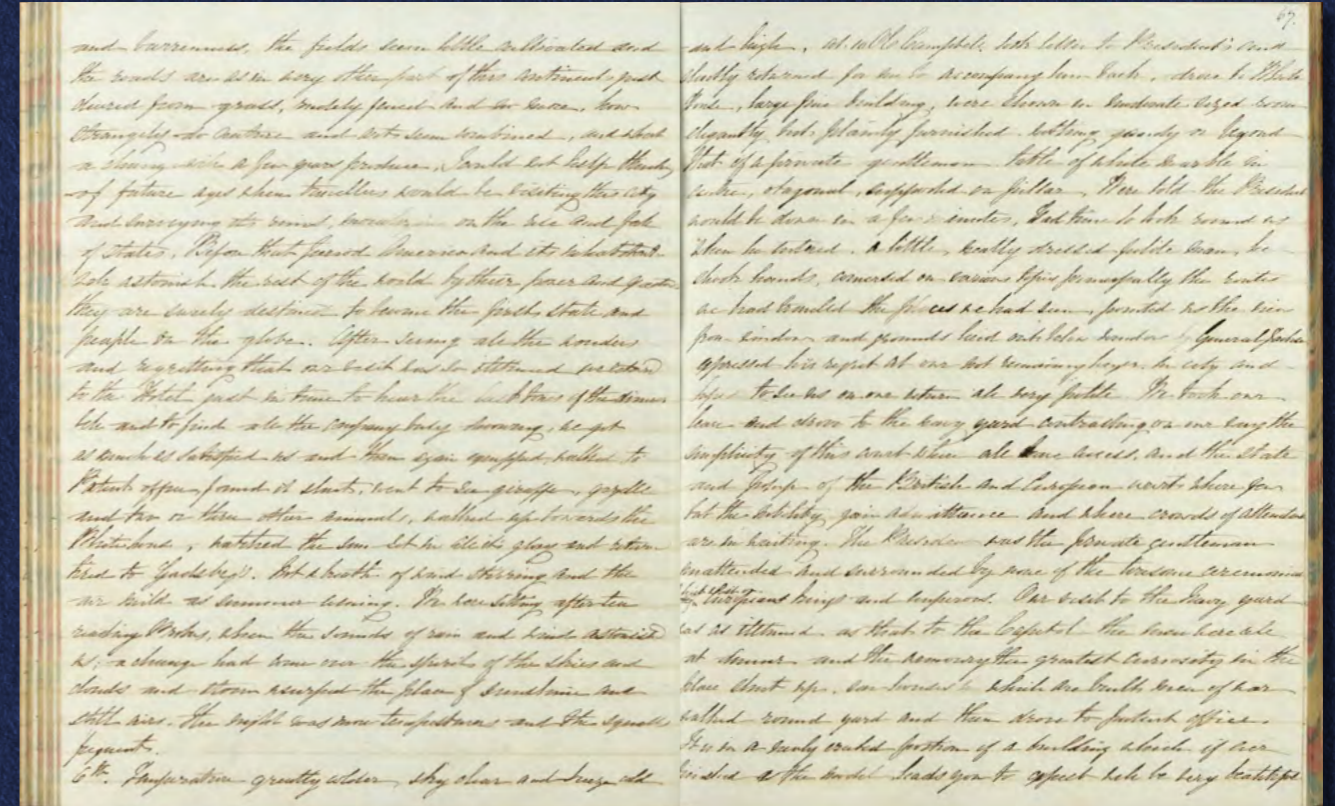 and barrenness, the fields seem little cultivated and
the roads are as in every other part of this continent, just
cleared from grass, rudely fenced and no more, how
strangely do nature and art seem combined, and what
a change will a few years produce, I could not help think
of future ages when travellers would be visiting this city
and surveying its ruins, on the rise and fall
of States. Before that period America and its inhabitants
will astonish the rest of the world by their power and
they are surely destined to become the first State and
people on the globe. After seeing all the wonders
and regretting that our visit was so ill timed we
to the Hotel just in time to hear the last tones of the dinner
bell and to find all the company busy devouring, we got
as much as satisfied us and then again walked to
Patent office found it shut, went to see giraffe, gazelle
and two or three other animals, walked up towards the
White house, watched the sun set in all its glory and return
tired to Gadsby's. Not a breath of wind stirring and the
air mild as summer evening. We were sitting after tea
reading Books, when the sounds of rain and wind astonished
us, a change had come over the spirit of the skies and
clouds and storm usurped the place of sunshine and
still airs. The night was most tempestuous and the squalls
frequent.
6th. Temperature greatly colder, sky clear and breeze cold
67.
and high. at Campbell took letter to President's and
returned for us to accompany him back, drove to White
House, large fine building, were shown in moderate sized room
elegantly but plainly furnished. nothing gaudy or beyond
that of a private gentleman table of white marble in
centre, octagonal, supported on pillar. Were told the President
would be down in a few minutes, had time to look round us
when he entered. a little, neatly dressed polite man, he
shook hands, conversed on various topics principally the routes
we had travelled the places we had seen, pointed us the view
from window and grounds laid out below window by General Jackson
expressed his regret at our not remaining longer in city and
hopes to see us on our return all very polite. We took our
leave and drove to the Navy yard contrasting on our way the
simplicity of this court where all have access, and the state
and pomp of the British and European courts where few
but the nobility gain admittance and where crowds of attendants
are in waiting. The President was the private gentleman
unattended and surrounded by none of the tiresome ceremonies
European kings and emperors. Our visit to the Navy yard
was as ill timed as that to the Capitol the men were all
at dinner and the armoury the greatest curiosity in the
place shut up. saw houses in which are built men of war
walked round yard and then drove to patent office.
It is in a newly erected portion of a building which if ever
finished as the model leads you to expect will be very beautiful